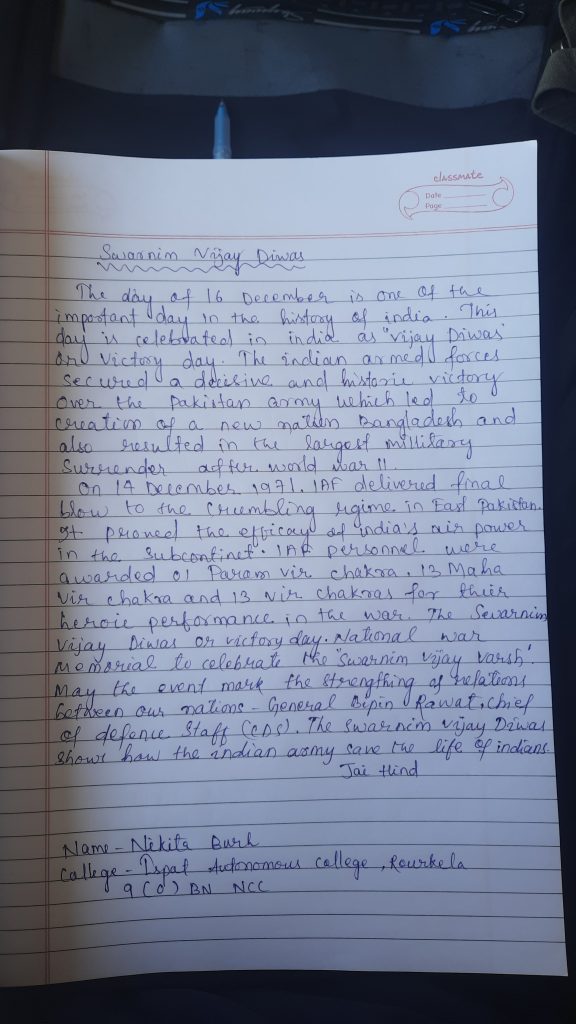 classmate
Date
Page
Swarnim Vijay Diwas
The day of 16 December is one of the
important day in the history of india. This
day is celebrated in india as "vijay Diwas"
or victory day. The indian armed forces
secured a decisive and historic victory
over the pakistan army which led to
creation of a new nation Bangladesh and
also resulted in the largest millitary
surrender after world war II.
On 14 December 1971, IAF delivered final
blow to the crumbling regime in East Pakistan.
It proned the efficay of india's air power
in the subcontinet. IAF personnel were
awarded 01 Param vir chakra, 13 Maha
vir chakra and 13 vir chakras for their
heroic performance in the war. The Sewarnim
vijay Diwas or victory day. National war
Memorial to celebrate the "swarnim vijay varsh".
May the event mark the strengthing of relations
between our nations - General Bipin Rawat, chief
of defence staff (CDS). The swarnim vijay Diwas
shows how the indian army save the life of indians.
Jai Hind
Name - Nikita Burh
college - Ispat Autonomous college, Rourkela
9 (O) BN NCC